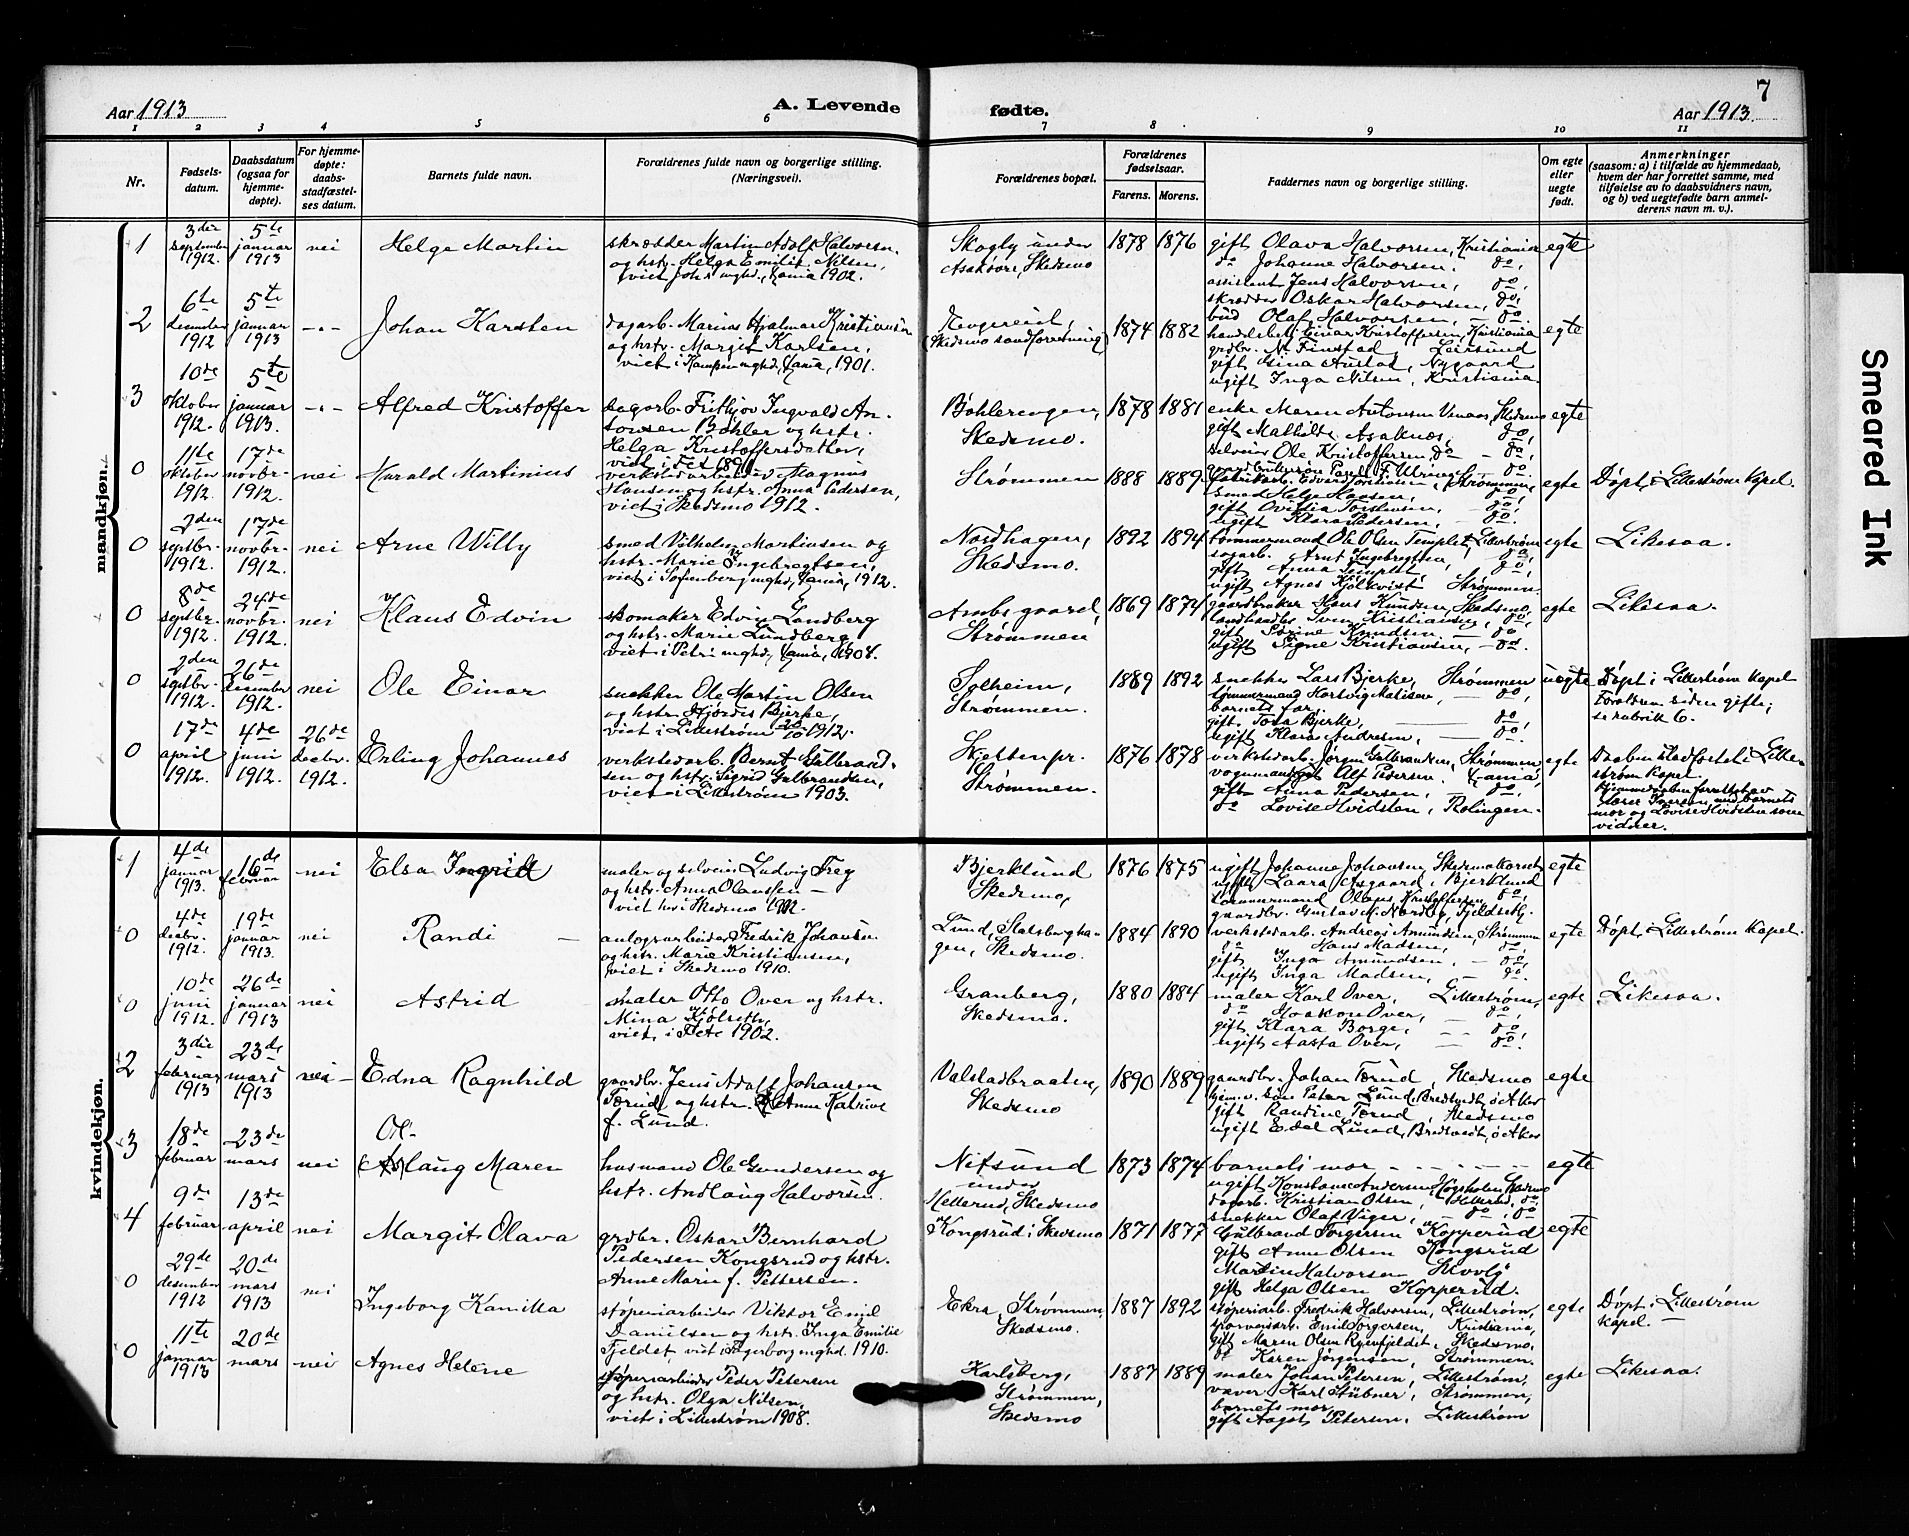 7
Aar 1913
A. Levende
fødte.
Aar 1913.
1 2 3 4 5 6 7 8 9 10 11
Nr.
Fødsels-
datum.
Daabsdatum
(ogsaa for
hjemme-
døpte).
For hjemme-
døpte:
daabs-
stadfæstel-
ses datum.
Barnets fulde navn.
Forældrenes fulde navn og borgerlige stilling.
(Næringsvei).
Forældrenes bopæl.
Forældrenes
fødselsaar.
Farens. Morens.
Faddernes navn og borgerlige stilling.
Om egte
eller
uegte
født.
Anmerkninger
(saasom: a) i tilfælde av hjemmedaab,
hvem der har forrettet samme, med
tilføielse av to daabsvidners navn,
og b) ved uegtefødte barn anmel-
derens navn m. v.).
mandkjøn.
1
3die
september
1912.
5te
januar
1913
nei
Helge Martin
skræder Martin Adolf Halvorsen
og hstr. Helga Emilie Nilsen,
viet Johs mghd., Xania 1902.
Skogly under
Asakøren, Skedsmo
1878 1876
gift Olava Halvorsen, Kristiania
do Johanne Halvorsen, do,
assistent Jens Halvorsen, do,
skrædder Oskar Halvorsen, do,
bud Olaf Halvorsen, do.
egte
2
6te
1912
5te
januar
1913
-"-
Johan Karsten
dagarb. Marius Hjalmar Kristiansen
og hstr. Margit Karlsen,
viet i Kampen mghd., Xania, 1901.
(Skedsmo sandforretning)
1874 1882
handelsbetj. Einar Kristoffersen, Kristiania
grdbr. N. Finstad, Leirsund
gift Gina Austad, Nygaard
ugift Inga Nilsen, Kristiania
egte
3
10de
oktober
1912.
5te
januar
1913.
-"-
Alfred Kristoffer
dagarb. Fritjov Ingvald An-
tonsen Bøhler og hstr.
Helga Kristoffersdatter,
Bøhlerengen,
Skedsmo.
1878 1881
enke Maren Antonsen Skedsmo
gift Mathilde Asaknes, do,
selveier Ole Kristoffersen, do - do,
egte
0
11te
oktober
1912.
17de
novbr-
1912.
nei
Harald Martinius
verkstedarbeider Magnus
Hansen og hstr. Anna Pedersen,
viet i Skedsmo 1912.
Strømmen
1888 1889.
fabrikarb. Edvard Torstensen, Strømmen,
smed Helge Hansen, do,
gift Ovidia Torstensen, - do,
ugift Klara Pedersen, - do.
egte
Døpt i Lillestrøm kapel.
0
2den
septbr-
1912.
17de
novbr-
1912.
nei
Arne Willy
smed Vilhelm Martinsen og
hstr. Marie Ingebregtsen,
viet i Sofienberg mghd., Xania, 1912.
Nordhagen,
Skedsmo.
1892 1894
tømmermand Ole Olsen Templet, Lillestrøm
Arnt Ingebregtsen, do,
gift Anna Templet do,
ugift Agnes Kjølkvist Strømmen.
egte
Likesaa.
0
8de
septbr.
1912.
24de
novbr.
1912.
nei
Klaus Edvin
skomaker Edvin Lundberg
og hstr. Marie Lundberg,
viet i Petri mghd., Xania, 1908.
Strømmen
1869 1874
gaardbruker Hans Knudsen, Skedsmo,
landhandler Sven Kristiansen, do,
gift Sørine Knudsen, - do,
ugift Signe Kristiansen, - do.
egte
Likesaa.
0
2den
septbr-
1912.
26de
desember
1912.
nei
Ole Einar
snekker Ole Martin Olsen
og hstr. Hjørdis Bjerke,
viet i Lillestrøm 20/10 1912.
Solheim,
Strømmen.
1889 1892
snekker Lars Bjerke, Strømmen
tømmermand Hartvig Matisen, - do,
barnets far,
gift Tora Bjerke, do,
ugift Klara Andresen, - do.
uegte
Døpt i Lillestrøm kapel
Forældrene siden gifte;
se rubrik 6.
0
17de
april
1912.
4de
juni
1912.
26de
decbr.
1912.
Erling Johannes
verkstedarb. Bernt Gulbrand-
sen og hstr. Sigrid Gulbrandsen,
viet i Lillestrøm 1903.
Skjettenpr.
Strømmen.
1876 1878
verkstedarb. Jørgen Gulbrandsen, Strømmen
Alf Pedersen, Xania,
gift Anna Pedersen, - do,
do Lovise Hvidsten, Rælingen.
egte
Daaben stadfæstet i Lille-
strøm kapel.
Hjemmedaaben forrettet av
lærer Iversen, med barnets
mor og Lovise Hvidsten som
vidner.
kvindekjøn.
1
4de
januar
1913.
16de
februar
nei
Elsa Ingrid
maler og selveier Ludvig Frey
og hstr. Anna Olaussen -
viet her i Skedsmo 1902.
Bjerklund
Skedsmo,
1876 1875
ugift Johanne Johansen, Skedsmokorset
ugift Laura Asgaard, Bjerklund
tømmermand Olaus Kristoffersen, do,
gaardbr. Gustav M. Nordby, Fjeldstg.
egte
0
4de
decbr.
1912.
19de
januar
1913.
nei
Randi
anlægsarbeider Fredrik Johansen
og hstr. Marie Kristiansen,
viet i Skedsmo 1910.
Lund, Stalsbergha-
gen, Skedsmo.
1884 1890
verkstedarb. Andreas Amundsen, Strømmen
do Hans Madsen, do,
gift Inga Amundsen, - do,
ugift Inga Madsen, - do.
egte
Døpt i Lillestrøm kapel.
0
10de
juni
1912.
26de
januar
1913
nei
Astrid
maler Otto Over og hstr.
Mina Kjølseth,
viet i Fete 1902.
Granberg,
Skedsmo.
1880 1884
maler Karl Over, Lillestrøm,
do Haakon Over, do,
gift Klara Borge, - do,
ugift Aasta Over, - do.
egte
Likesaa.
2
3die
februar
1913
23de
mars
1913
nei -
Edna Ragnhild
gaardbr. Jens Adolf Johansen
Tærud og hstr. Anne Katrine
f. Lund.
Valstadbraaten,
Skedsmo
1890 1889
gaardbr. Johan Tærud, Skedsmo
Peter Lund, Bredtvedt, ø Aker
gift Randine Tærud, Skedsmo
ugift Edel Lund, Bredtvedt, ø Aker
egte
3
18de
februar
23de
mars
nei
Ol-
(As)laug Maren
husmand Ole Gundersen og
hstr. Andlaug Halvorsen.
Nitsund
under
Hellerud, Skedsmo
1873 1874
barnets mor - - - - - -
ugift Konstanse Andersen, Skedsmo
dagarb. Kristian Olsen, Hellerud, do
snekker Olaf Viger, - do, do
egte
4
9de
februar
13de
april
nei
Margit Olava
grdbr. Oskar Bernhard
Pedersen Kongsrud og hstr.
Anne Marie f. Pettersen.
Kongsrud i Skedsmo
1871 1877
Gulbrand Torgersen Kopperud
gift Anne Olsen Kongsrud
Martin Halvorsen Skovly
gift Helga Olsen Kopperud.
egte
0
29de
desember
1912
20de
mars
1913
nei
Ingeborg Kamilla
støperiarbeider Viktor Emil
Danielsen og hstr. Inga Emilie
Fjeldet, viet i Fagerborg mghd. 1910.
Ekra, Strømmen,
Skedsmo.
1887 1892
støperiarb. Fredrik Halvorsen, Lillestrøm,
sporveisarb. Emil Torgersen, Kristiania,
gift Maren Olsen Ryenfjeldet, Skedsmo,
do Karen Jørgensen, Strømmen.
egte
Døpt i Lillestrøm
kapel. -
0
11te
januar
1913
20de
mars
nei
Agnes Helene
støperiarbeider Peder Petersen
og hstr. Olga Nilsen,
viet i Lillestrøm 1908.
Karlsberg,
Strømmen,
Skedsmo
1887 1889
maler Johan Petersen, Lillestrøm,
væver Karl Stübner, Strømmen,
barnets mor,
gift Aagot Petersen, Lillestrøm
egte
Likesaa.
Smeared Ink